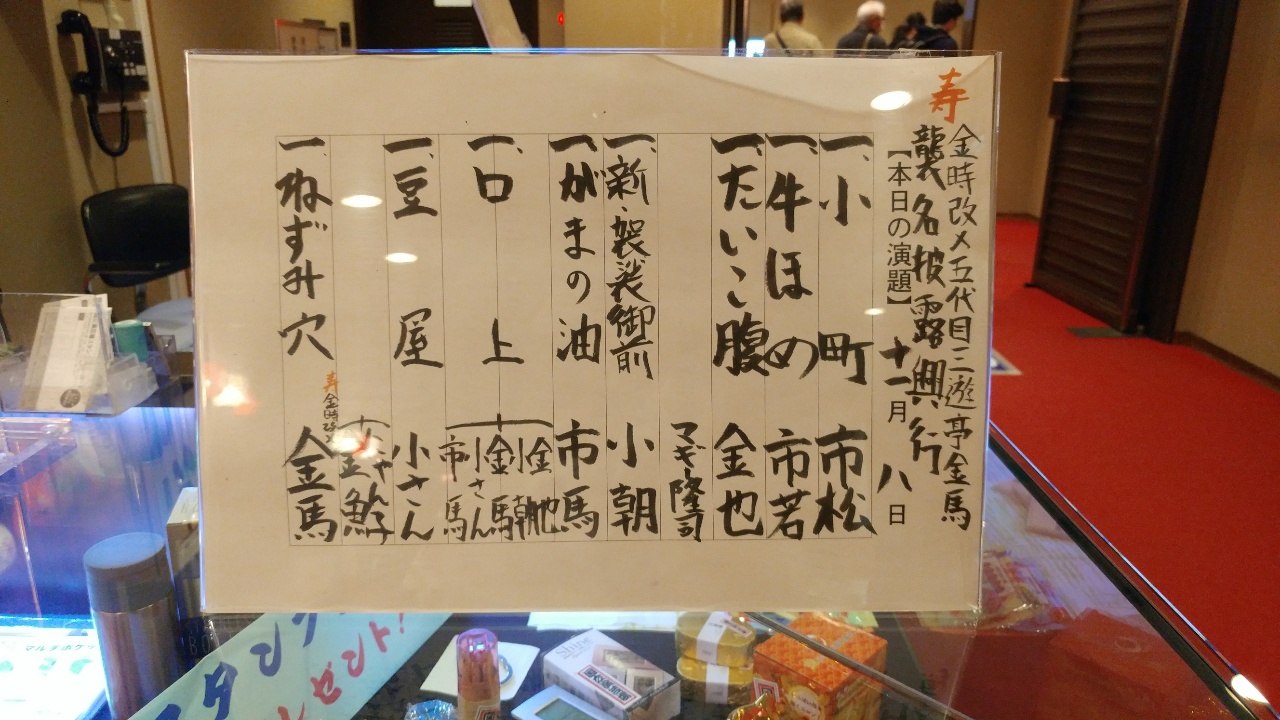 寿
金時改メ五代目三遊亭金馬
襲名披露興行
【本日の演題】 十一月 八日
一、小町 市松
一、牛ほめ 市若
一、たいこ腹 金也
マギー隆司
一、新・袈裟御前 小朝
一、がまの油 市馬
一、口上
金馬
小さん
市馬
一、豆屋 小さん
一、ねずみ穴 寿 金時改メ 金馬
スタンプ
レゼント!
マルチポケッ